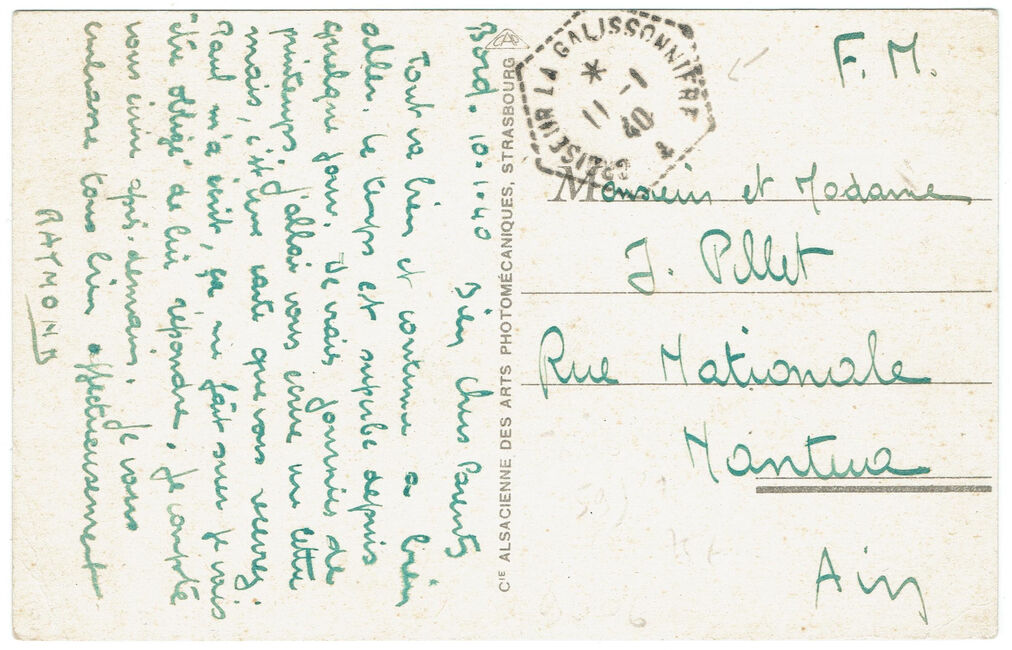 Bord. 10-1-40 Bien Chers Parents
Tout va bien et continue a bien
aller. le temps est superbe depuis
quelque jours. De vraies journées de
printemps, j'allais vous écrire une lettre
mais, c'est une carte que vous recevrez
Paul m'a écrit, ça me fait suer je vais
été obligé de lui répondre. je compte
vous écrire après-demain. je vous
embrasse tous bien affectueusement
RAYMOND
CIE ALSACIENNE DES ARTS PHOTOMÉCANIQUES, STRASBOURG
CAP
CROISEUR LA GALISSONNIERE
11 -1
40
F.M.
Monsieur et Madame
J. Pillet
Rue Nationale
Nantua
Ain